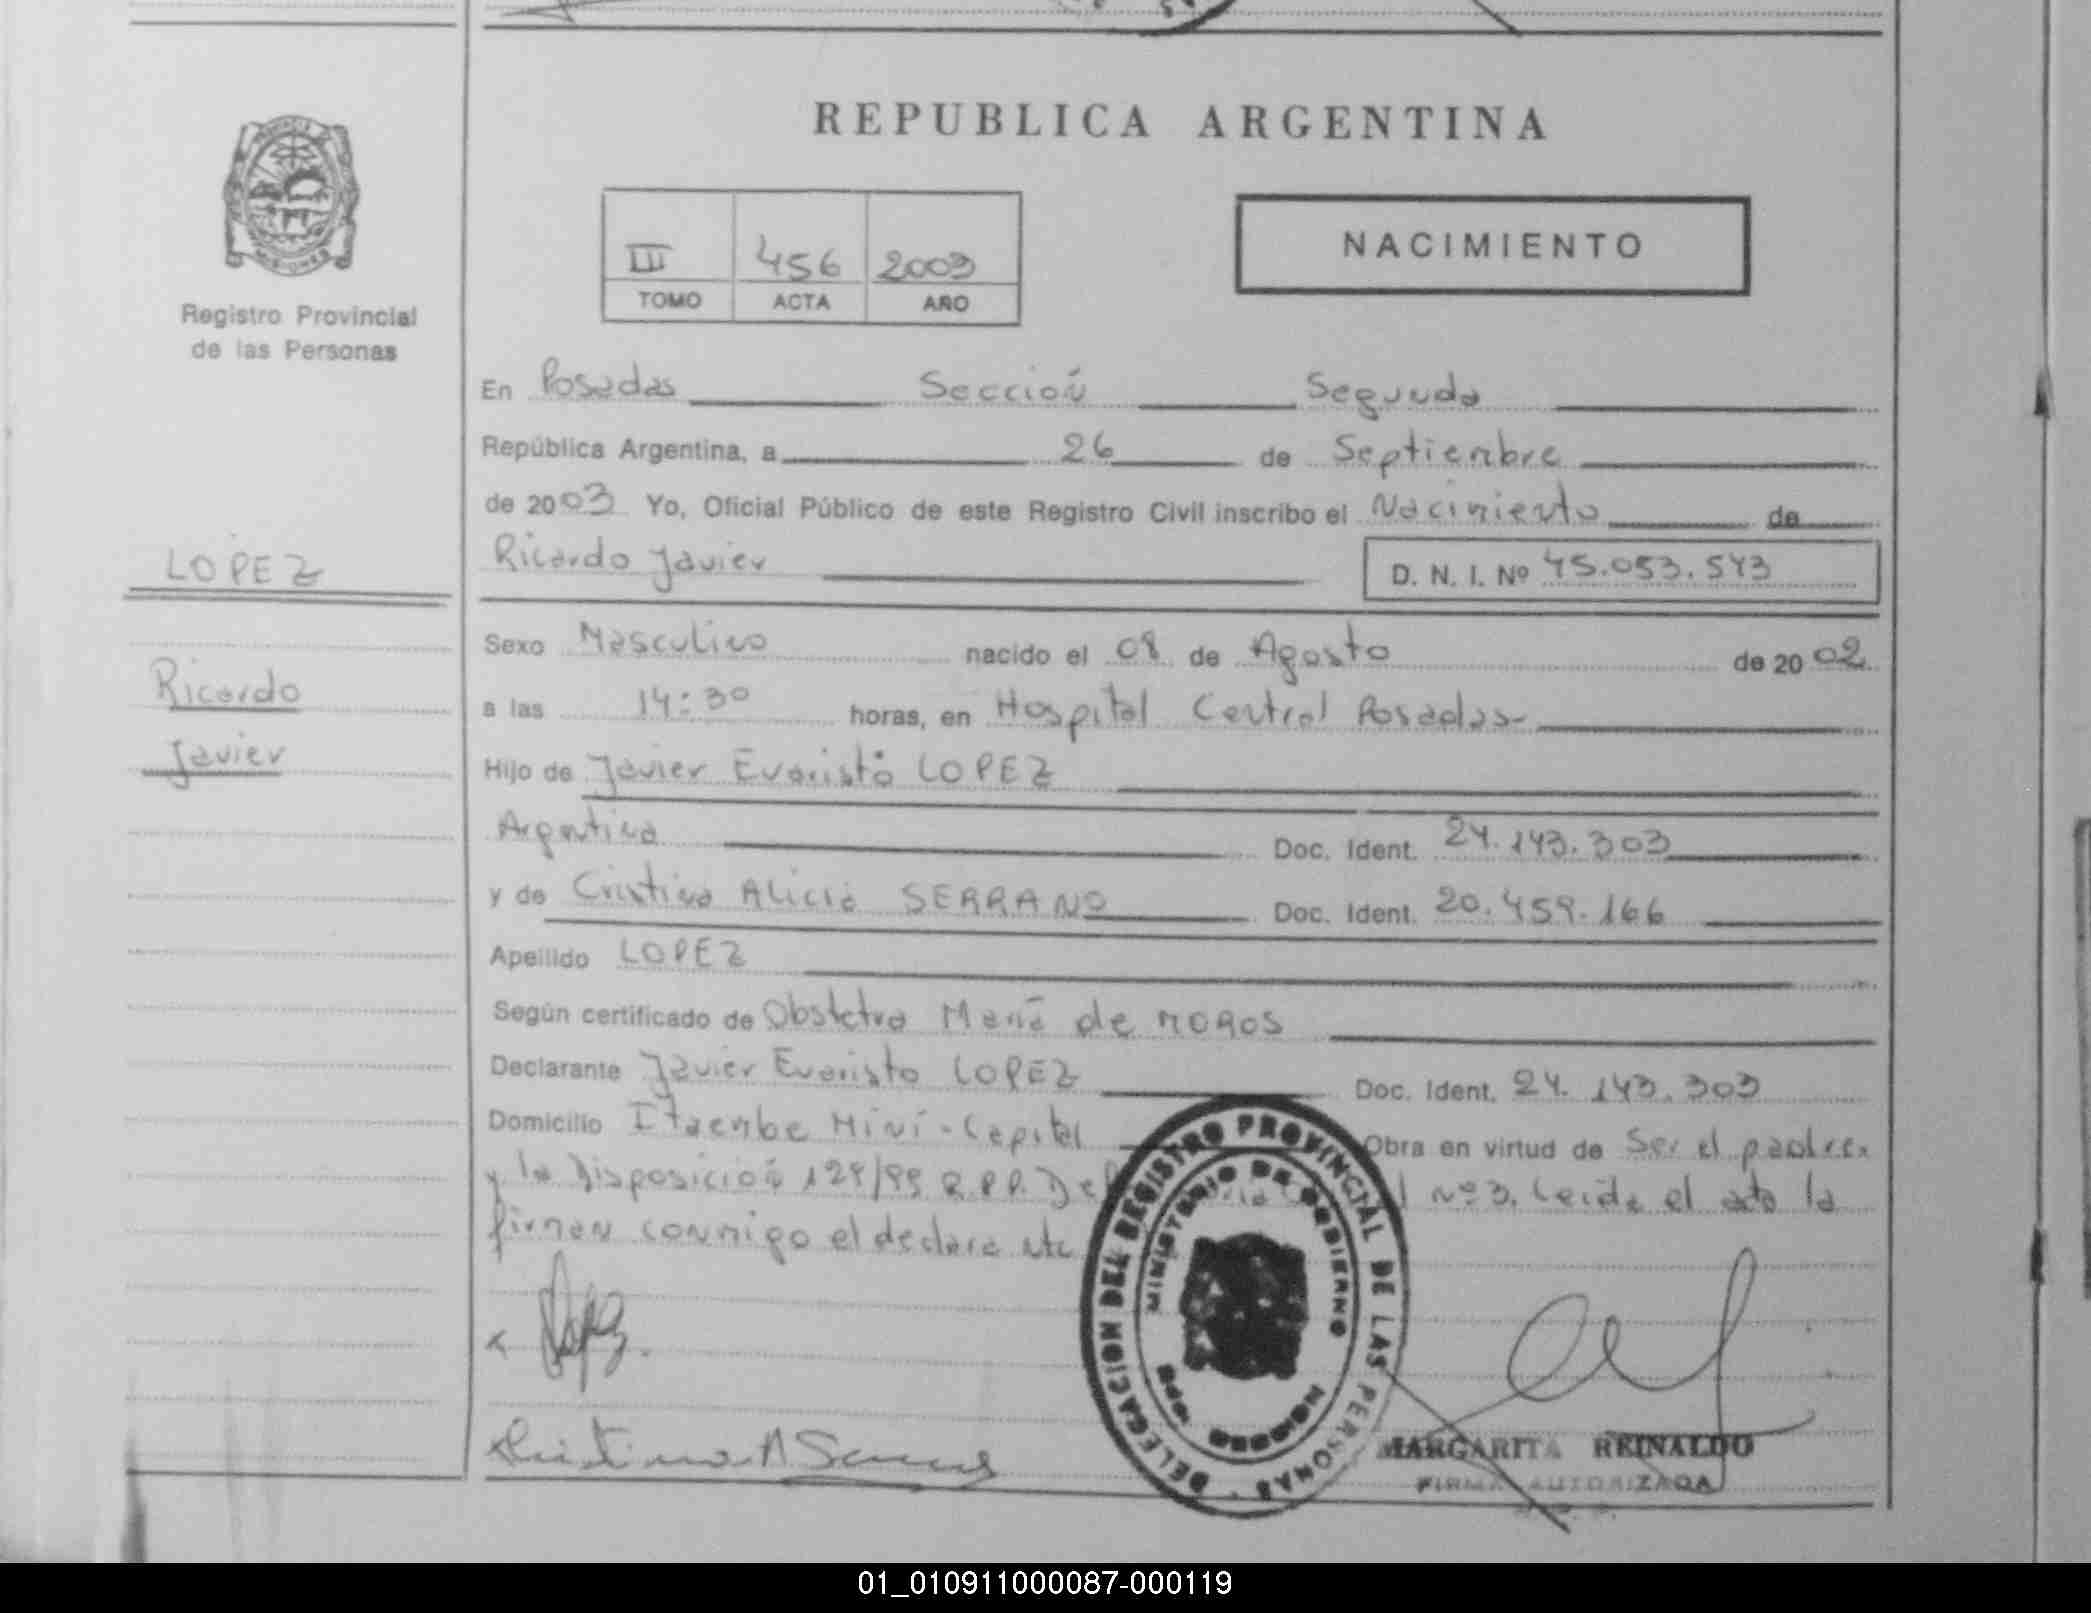 REPUBLICA ARGENTINA
III 456 2003
TOMO ACTA AÑO
NACIMIENTO
Registro Provincial
de las Personas
En Posadas Sección Segunda
República Argentina, a 26 de Septiembre
de 2003 Yo, Oficial Público de este Registro Civil inscribo el Nacimiento de
Ricardo Javier D. N. I. Nº 45.053.543
LOPEZ
Ricardo
Javier
Sexo Masculino nacido el 08 de Agosto de 2002
a las 14:30 horas, en Hospital Central Posadas
Hijo de Javier Evaristo LOPEZ
Argentina Doc. Ident. 24.143.303
y de Cristina Alicia SERRANO Doc. Ident. 20.459.166
Apellido LOPEZ
Según certificado de Obstetra María de MOROS
Declarante Javier Evaristo LOPEZ Doc. Ident. 24.143.303
Domicilio Itaembe Mini - Capital Obra en virtud de Ser el padre
y la Disposición 129/99 R.P.P. nº 3. Leida el acta la
firman conmigo el declarante
DELEGACION DEL REGISTRO PROVINCIAL DE LAS PERSONAS
MINISTERIO DE GOBIERNO
Lopez
Cristina A Serrano
MARGARITA REINALDO
FIRMA AUTORIZADA
01_010911000087-000119